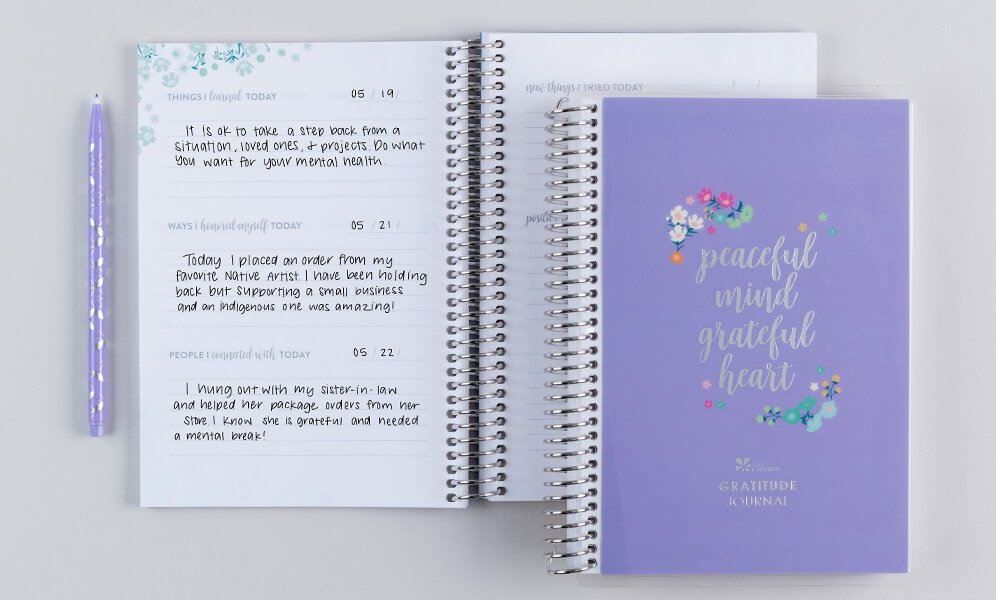 THINGS I learned TODAY 05 / 19 /
It is ok to take a step back from a
situation, loved ones, & projects. Do what
you want for your mental health.
WAYS I honored myself TODAY 05 / 21 /
Today I placed an order from my
favorite Native Artist. I have been holding
back but supporting a small business
and an indigenous one was amazing!
PEOPLE I connected with TODAY 05 / 22 /
I hung out with my sister-in-law
and helped her package orders from her
store. I know she is grateful and needed
a mental break!
new things I TRIED TODAY / /
peaceful
mind
grateful
heart
GRATITUDE
JOURNAL